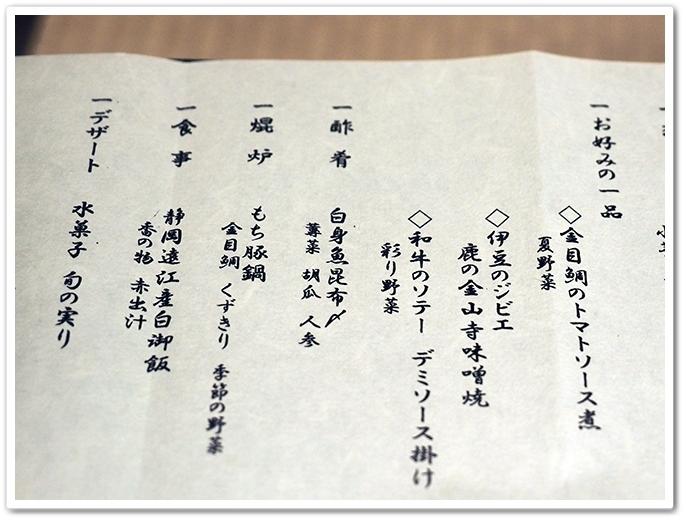 一お好みの一品
◇金目鯛のトマトソース煮
夏野菜
◇伊豆のジビエ
鹿の金山寺味噌焼
◇和牛のソテー デミソース掛け
彩り野菜
一酢肴
白身魚昆布〆
蓴菜 胡瓜 人参
一焜炉
もち豚鍋
金目鯛 くずきり 季節の野菜
一食事
静岡遠江産白御飯
香の物 赤出汁
一デザート
水菓子 旬の実り